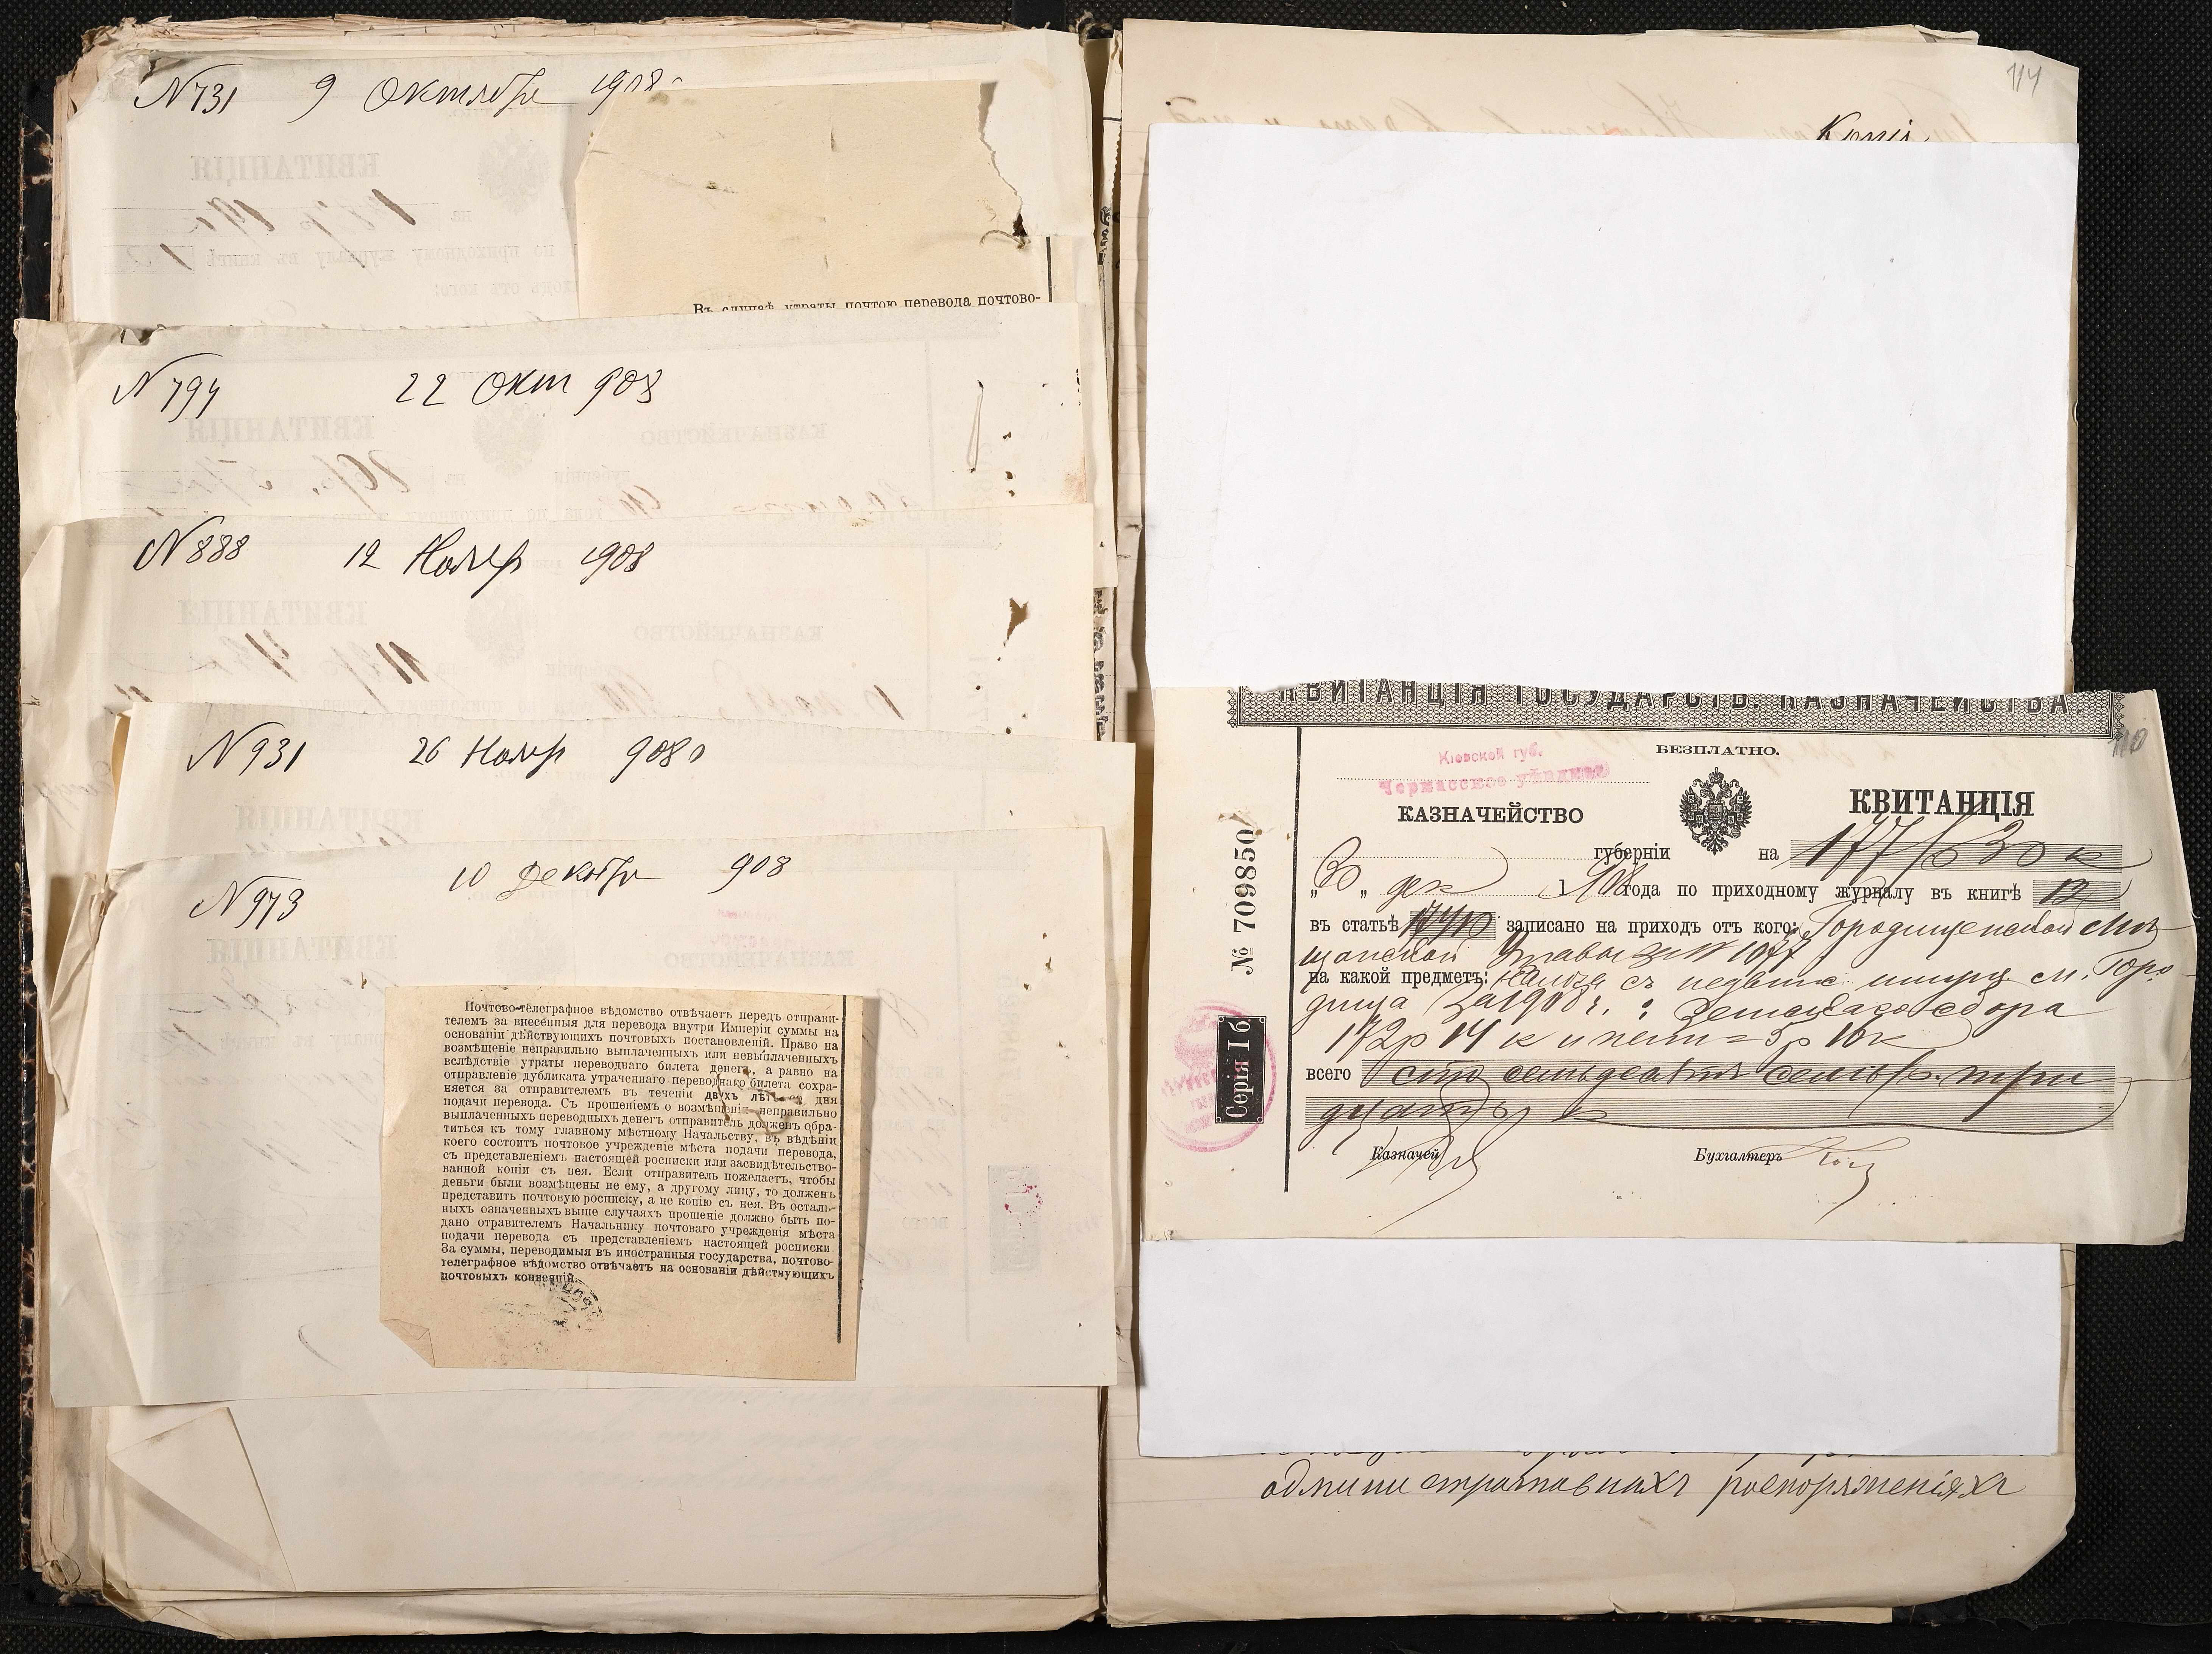 N731 9 Октября 1908
Въ случаѣ утраты почтою перевода почтово-
N794 22 Окт 908
N888 12 Ноябр 1908
N931 26 Ноябр 908
N973 10 Декабря 908
Почтово-телеграфное вѣдомство отвѣчаетъ передъ отправи-
телемъ за внесенныя для перевода внутри Имперіи суммы на
основаніи дѣйствующихъ почтовыхъ постановленій. Право на
возмѣщеніе неправильно выплаченныхъ или невыплаченныхъ
вслѣдствіе утраты переводнаго билета денегъ, а равно на
отправленіе дубликата утраченнаго переводнаго билета сохра-
няется за отправителемъ въ теченіи двухъ лѣтъ со дня
подачи перевода. Съ прошеніемъ о возмѣщеніи неправильно
выплаченныхъ переводныхъ денегъ отправитель долженъ обра-
титься къ тому главному мѣстному Начальству, въ вѣдѣніи
коего состоитъ почтовое учрежденіе мѣста подачи перевода,
съ представленіемъ настоящей росписки или засвидѣтельство-
ванной копіи съ нея. Если отправитель пожелаетъ, чтобы
деньги были возмѣщены не ему, а другому лицу, то долженъ
представить почтовую росписку, а не копію съ нея. Въ осталь-
ныхъ означенныхъ выше случаяхъ прошеніе должно быть по-
дано отравителемъ Начальнику почтоваго учрежденія мѣста
подачи перевода съ представленіемъ настоящей росписки
За суммы, переводимыя въ иностранныя государства, почтово-
телеграфное вѣдомство отвѣчаетъ на основаніи дѣйствующихъ
почтовыхъ конвенцій.
114
Копія
КВИТАНЦІЯ ГОСУДАРСТВ. КАЗНАЧЕЙСТВА.
110
БЕЗПЛАТНО.
Кіевской губ.
Черкасское уѣздное
КАЗНАЧЕЙСТВО
КВИТАНЦІЯ
губерніи на 177 р 30 к
„30„ дек 1908 года по приходному журналу въ книгѣ 12
въ статьѣ 17410 записано на приходъ отъ кого: Городищенской Мѣ-
щанской Управы за N 1077
на какой предметъ: налога съ недвиж имущ м. Горо-
дища за 1908 г. Земскаго сбора
172 р 14 к и пени = 5 р 16 к
всего сто семьдесятъ семь р. три
дцать к
Казначей
Бухгалтеръ
№ 709850
Серія I б
административныхъ распоряженіяхъ